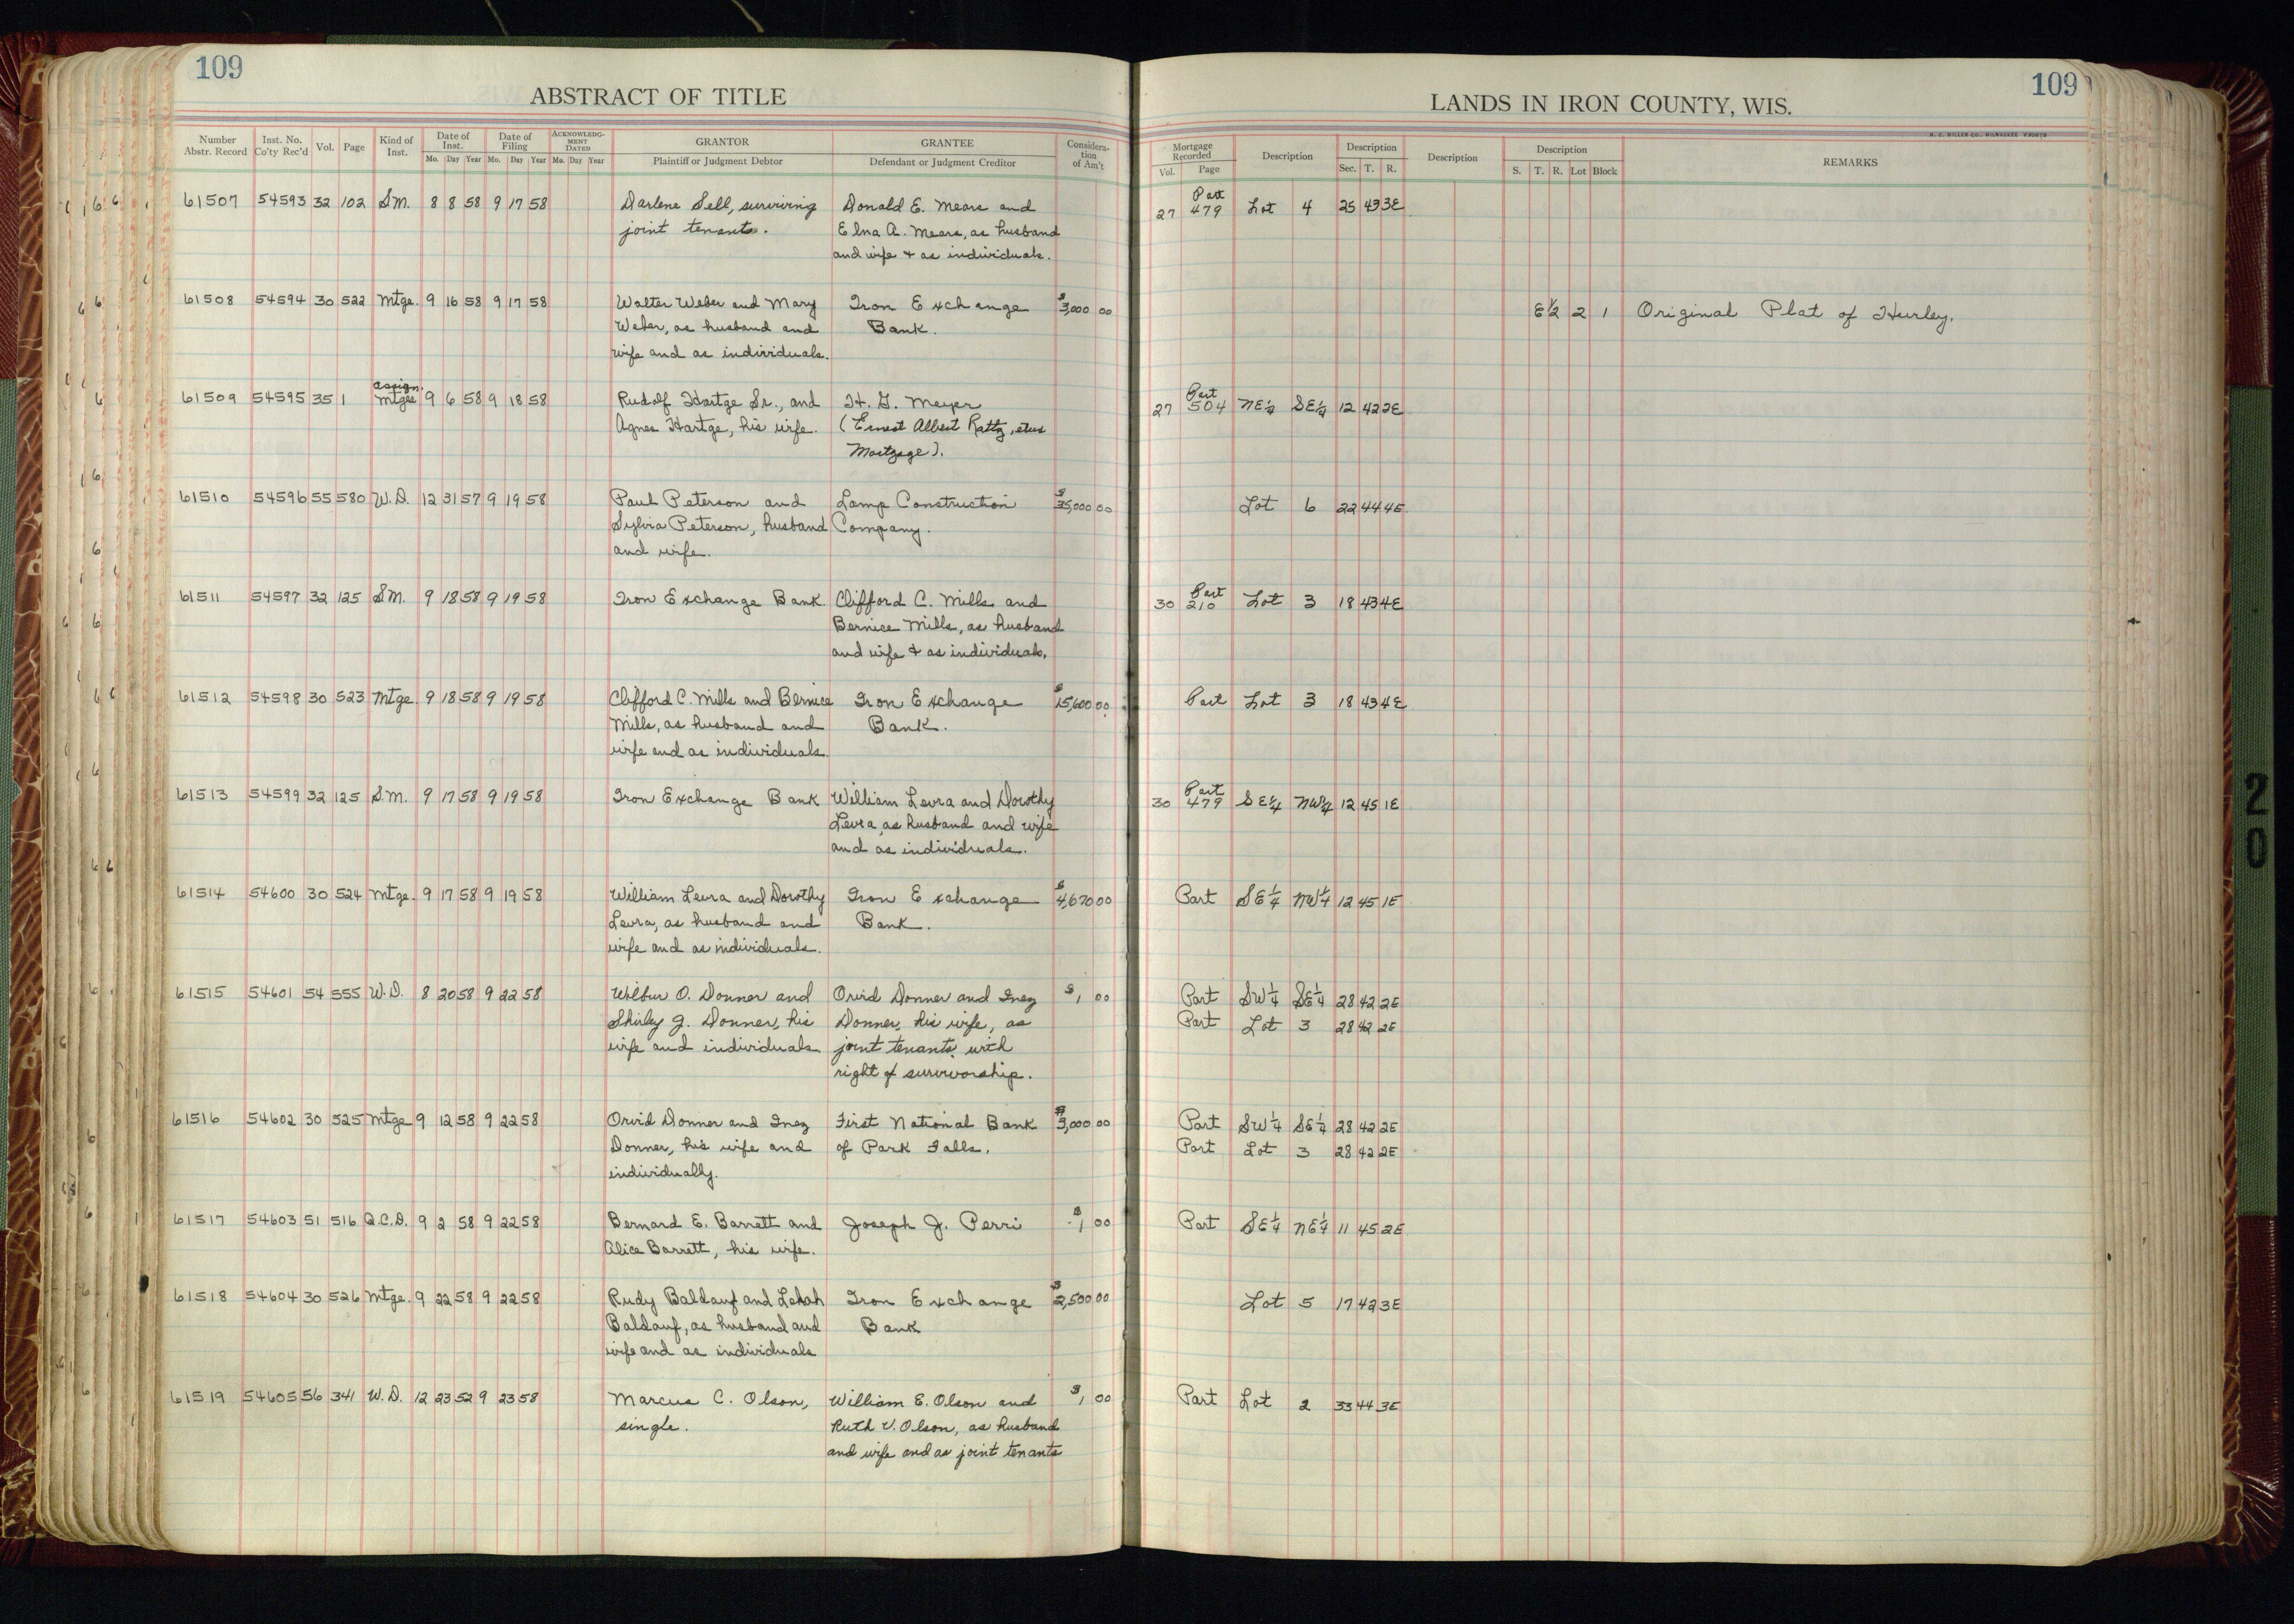 109
ABSTRACT OF TITLE
Number Abstr. Record Inst. No. Co'ty Rec'd Vol. Page Kind of Inst. Date of Inst. Mo. Day Year Date of Filing Mo. Day Year ACKNOWLEDG-MENT DATED Mo. Day Year GRANTOR Plaintiff or Judgment Debtor GRANTEE Defendant or Judgment Creditor Considera-tion of Am't
109
LANDS IN IRON COUNTY, WIS.
Mortgage Recorded Vol. Page Description Description Sec. T. R. Description Description S. T. R. Lot Block REMARKS
61507 54593 32 102 S.M. 8 8 58 9 17 58 Darlene Sell, surviving Donald E. Mears and 27 Part 479 Lot 4 25 43 3E
joint tenant. Elna A. Mears, as husband
and wife + as individuals.
61508 54594 30 522 Mtge. 9 16 58 9 17 58 Walter Weber and Mary Iron Exchange $3,000 00 E½ 2 1 Original Plat of Hurley.
Weber, as husband and Bank.
wife and as individuals.
61509 54595 35 1 Assign. Mtges 9 6 58 9 18 58 Rudolf Hartge Sr., and H. G. Meyer 27 Part 504 NE¼ SE¼ 12 42 2E
Agnes Hartge, his wife. (Ernest Albert Rattz, etux
Mortgage).
61510 54596 55 580 W.D. 12 31 57 9 19 58 Paul Peterson and Lamp Construction $35,000 00 Lot 6 22 44 4E
Sylvia Peterson, husband Company.
and wife.
61511 54597 32 125 S.M. 9 18 58 9 19 58 Iron Exchange Bank Clifford C. Mills and 30 Part 210 Lot 3 18 43 4E
Bernice Mills, as husband
and wife + as individuals.
61512 54598 30 523 Mtge. 9 18 58 9 19 58 Clifford C. Mills and Bernice Iron Exchange $15,600 00 Part Lot 3 18 43 4E
Mills, as husband and Bank.
wife and as individuals.
61513 54599 32 125 S.M. 9 17 58 9 19 58 Iron Exchange Bank William Levra and Dorothy 30 Part 479 SE¼ NW¼ 12 45 1E
Levra, as husband and wife
and as individuals.
61514 54600 30 524 Mtge. 9 17 58 9 19 58 William Levra and Dorothy Iron Exchange $4,670 00 Part SE¼ NW¼ 12 45 1E
Levra, as husband and Bank.
wife and as individuals.
61515 54601 54 555 W.D. 8 20 58 9 22 58 Wilbur O. Donner and Orvid Donner and Inez $1 00 Part SW¼ SE¼ 28 42 2E
Shirley J. Donner, his Donner, his wife, as Part Lot 3 28 42 2E
wife and individuals. joint tenants, with
right of survivorship.
61516 54602 30 525 Mtge 9 12 58 9 22 58 Orvid Donner and Inez First National Bank $3,000 00 Part SW¼ SE¼ 28 42 2E
Donner, his wife and of Park Falls. Part Lot 3 28 42 2E
individually.
61517 54603 51 516 Q.C.D. 9 2 58 9 22 58 Bernard E. Barrett and Joseph J. Perri $1 00 Part SE¼ NE¼ 11 45 2E
Alice Barrett, his wife.
61518 54604 30 526 Mtge. 9 22 58 9 22 58 Rudy Baldauf and Iron Exchange $2,500 00 Lot 5 17 42 3E
Baldauf, as husband and Bank
wife and as individuals
61519 54605 56 341 W.D. 12 23 52 9 23 58 Marcus C. Olson, William E. Olson and $1 00 Part Lot 2 33 44 3E
single. Ruth V. Olson, as husband
and wife and as joint tenants
20